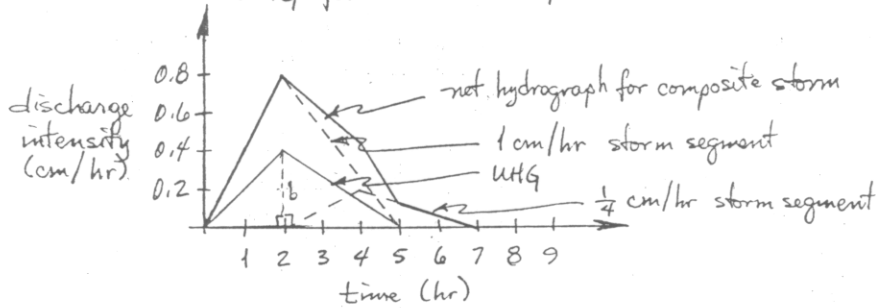 0.8
0.6
0.4
0.2
discharge
intensity
(cm/hr)
net hydrograph for composite storm
1 cm/hr storm segment
UHG
1/4 cm/hr storm segment
b
1 2 3 4 5 6 7 8 9
time (hr)